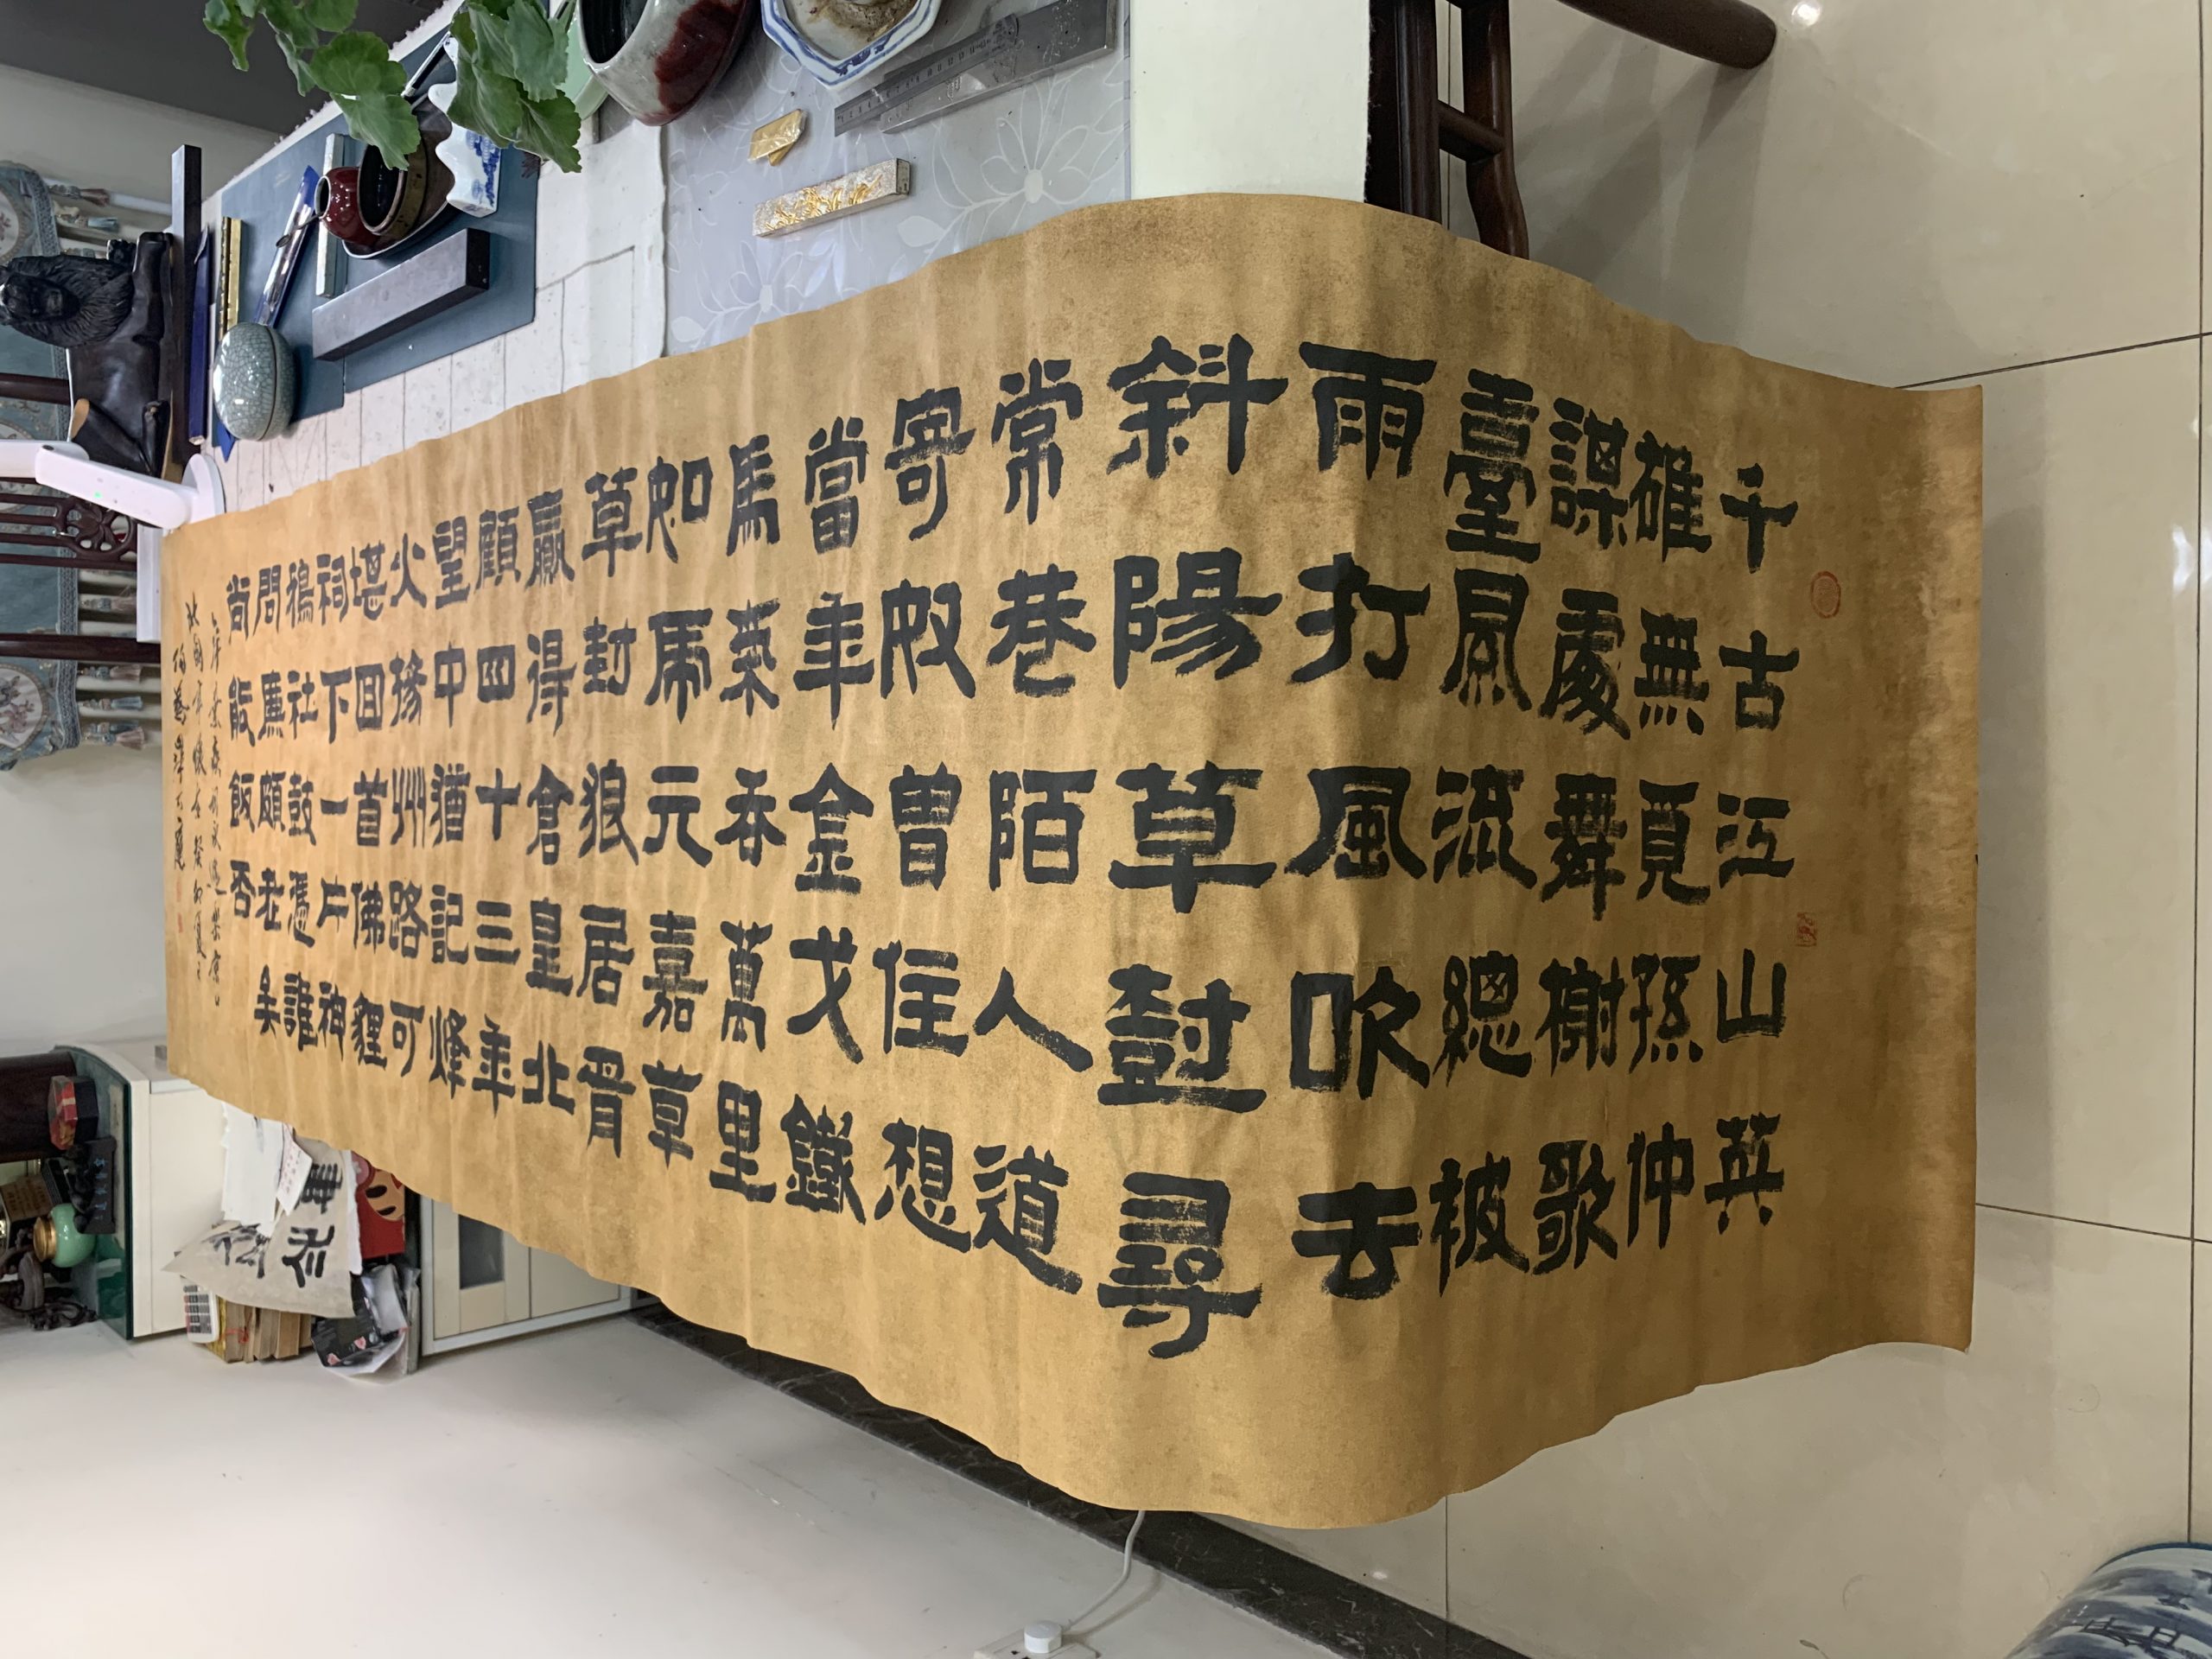 千古江山英
雄無覓孫仲
謀處舞榭歌
臺風流總被
雨打風吹去
斜陽草樹尋
常巷陌人道
寄奴曾住想
當年金戈鐵
馬氣吞萬里
如虎元嘉草
草封狼居胥
贏得倉皇北
顧四十三年
望中猶記烽
火揚州路可
堪回首佛貍
祠下一片神
鴉社鼓憑誰
問廉頗老矣
尚能飯否
辛棄疾詞永遇樂京口
北固亭懷古癸卯夏